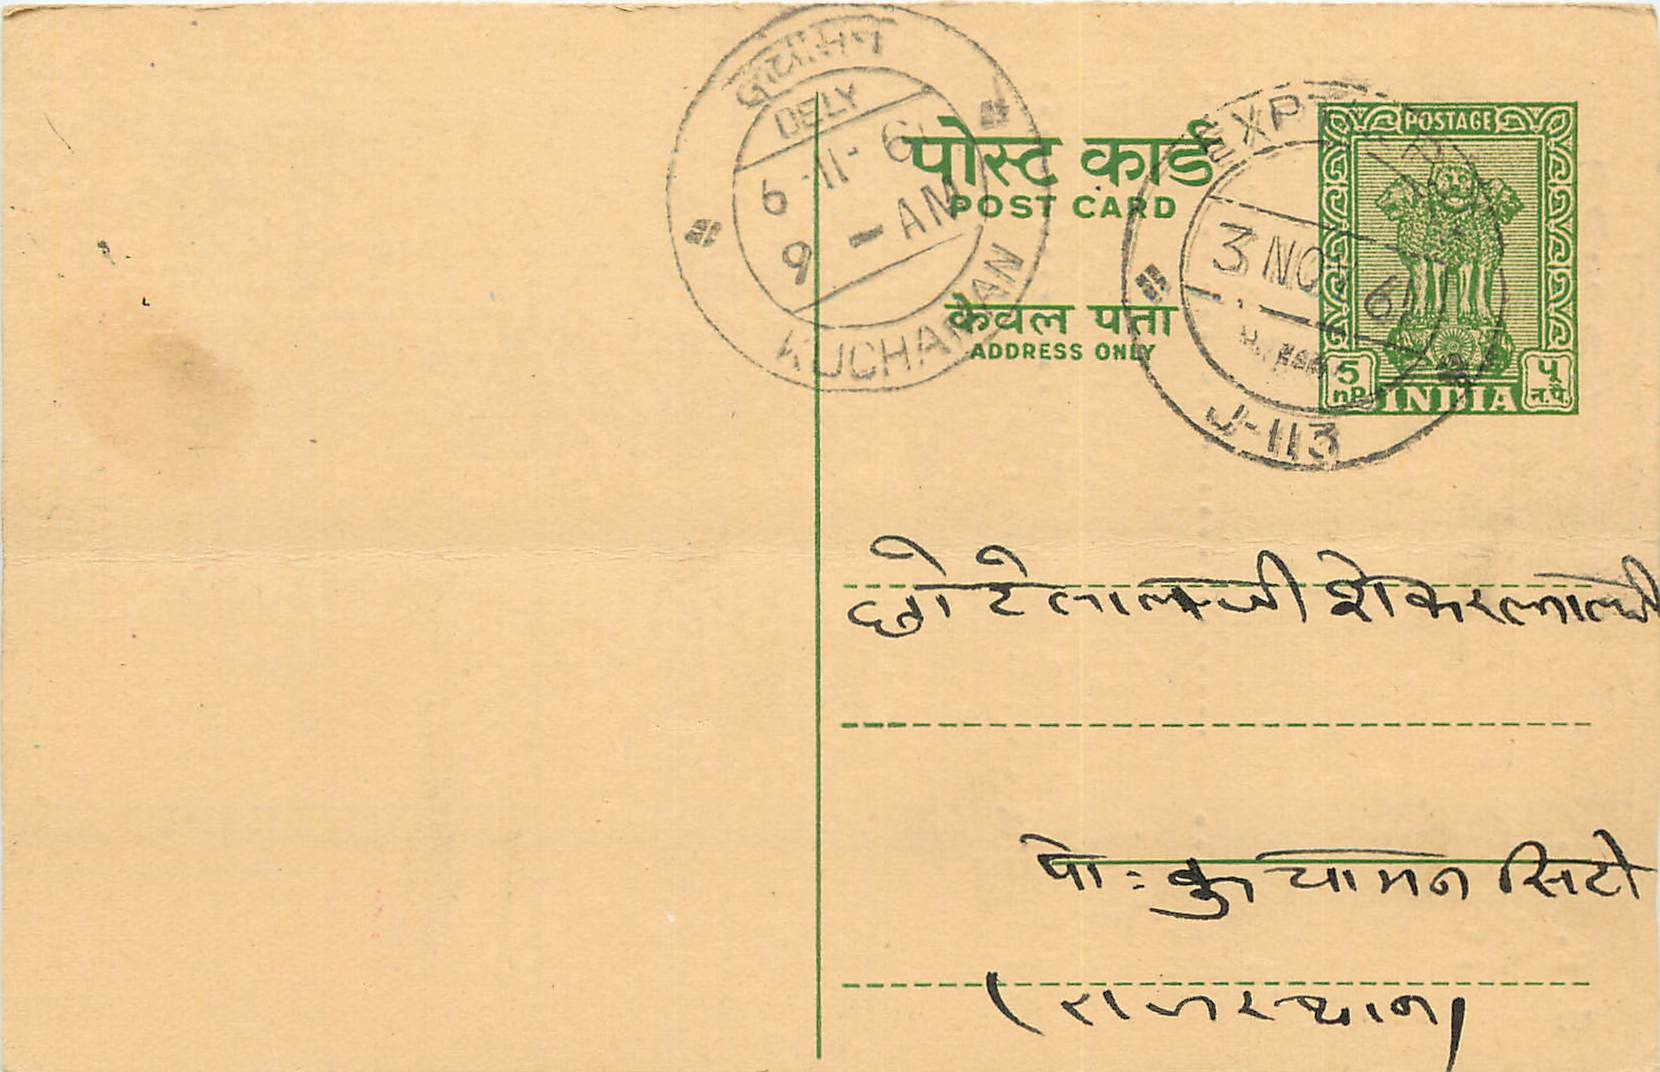 कुचामन
DELY
6-11-61
9-AM
KUCHAMAN
पोस्ट कार्ड
POST CARD
केवल पता
ADDRESS ONLY
3 NOV 61
J-113
POSTAGE
5 nP.
INDIA
५ न.पै.
छोटेलालजी शंकरलालजी
पो: कुचामन सिटी
(राजस्थान)